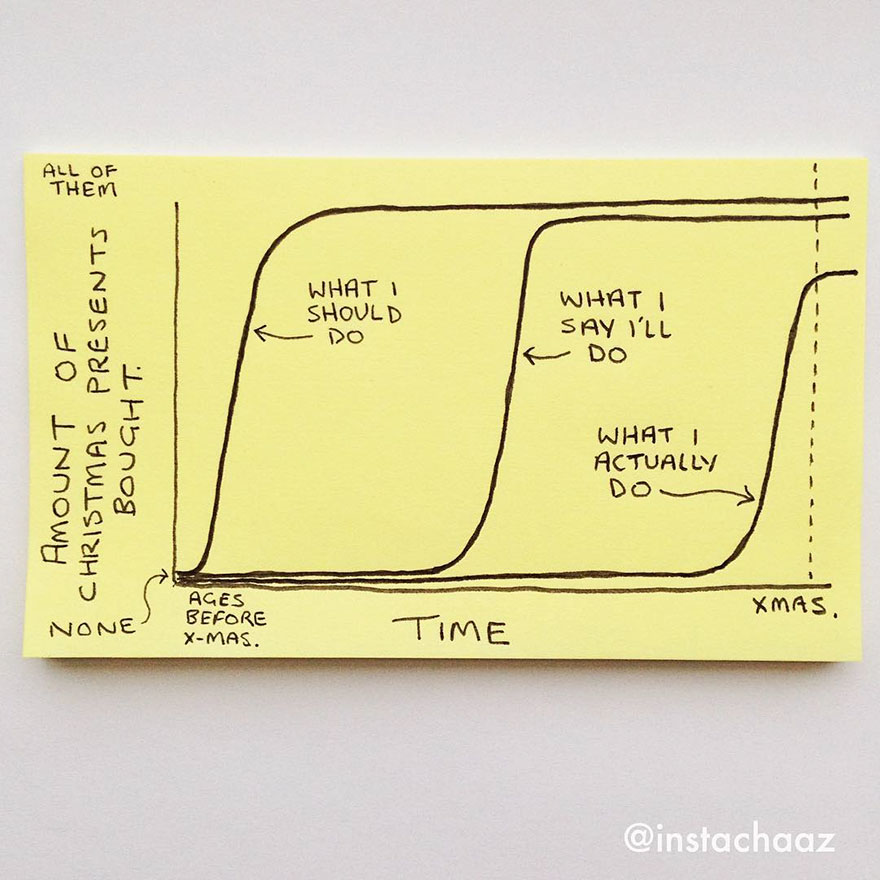 ALL OF
THEM
AMOUNT OF
CHRISTMAS PRESENTS
BOUGHT.
NONE
WHAT I
SHOULD
DO
WHAT I
SAY I'LL
DO
WHAT I
ACTUALLY
DO
AGES
BEFORE
X-MAS.
TIME
XMAS.
@instachaaz